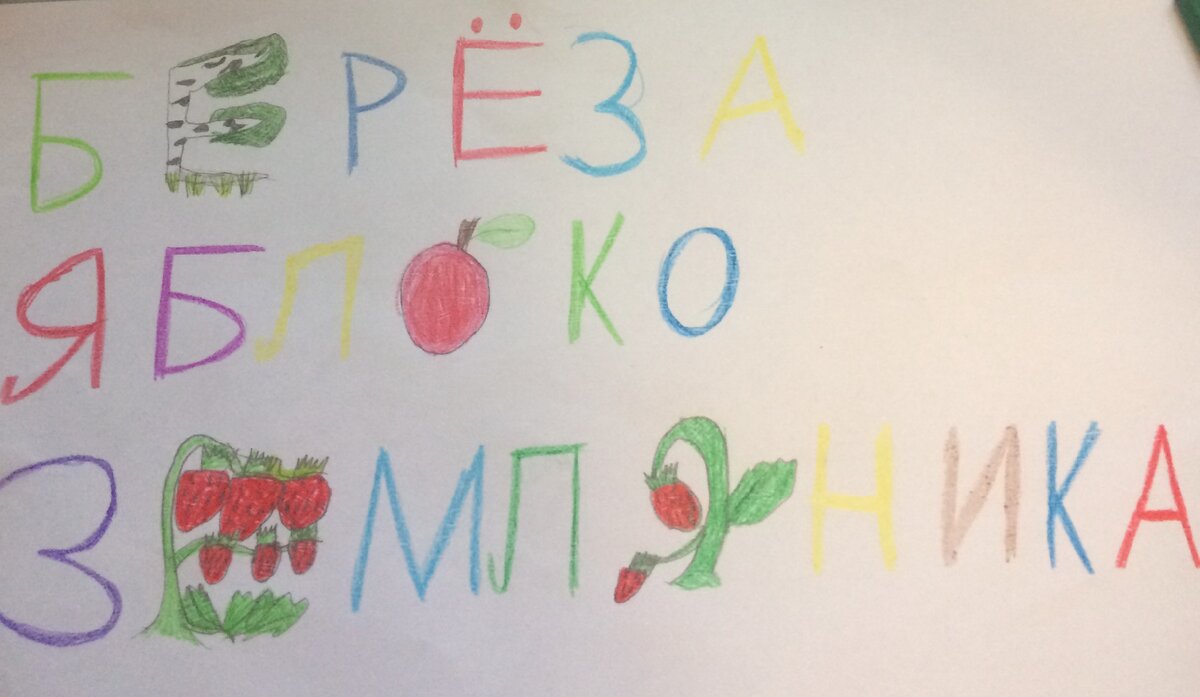 БЕРЁЗА
ЯБЛОКО
ЗЕМЛЯНИКА